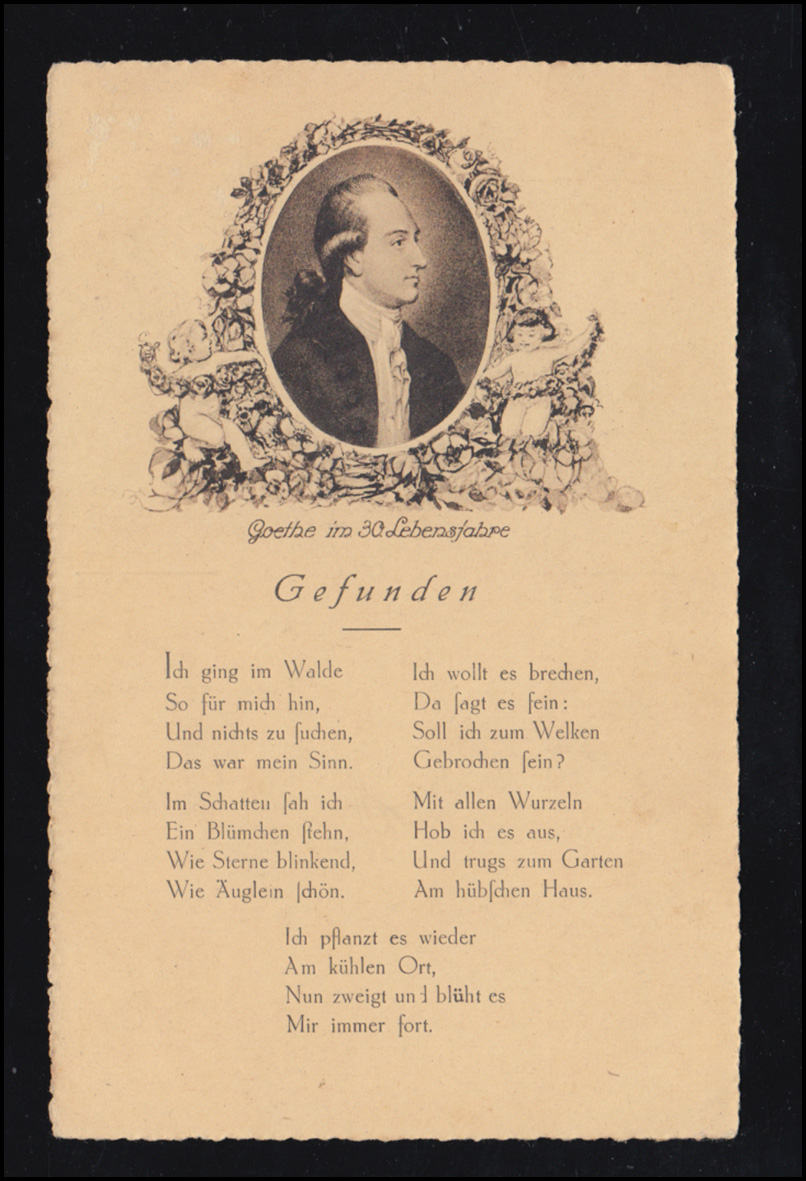 Goethe im 30. Lebensjahre
Gefunden
Ich ging im Walde
So für mich hin,
Und nichts zu ſuchen,
Das war mein Sinn.
Im Schatten ſah ich
Ein Blümchen ſtehn,
Wie Sterne blinkend,
Wie Äuglein ſchön.
Ich wollt es brechen,
Da ſagt es fein:
Soll ich zum Welken
Gebrochen ſein?
Mit allen Wurzeln
Hob ich es aus,
Und trugs zum Garten
Am hübſchen Haus.
Ich pflanzt es wieder
Am kühlen Ort,
Nun zweigt und blüht es
Mir immer fort.